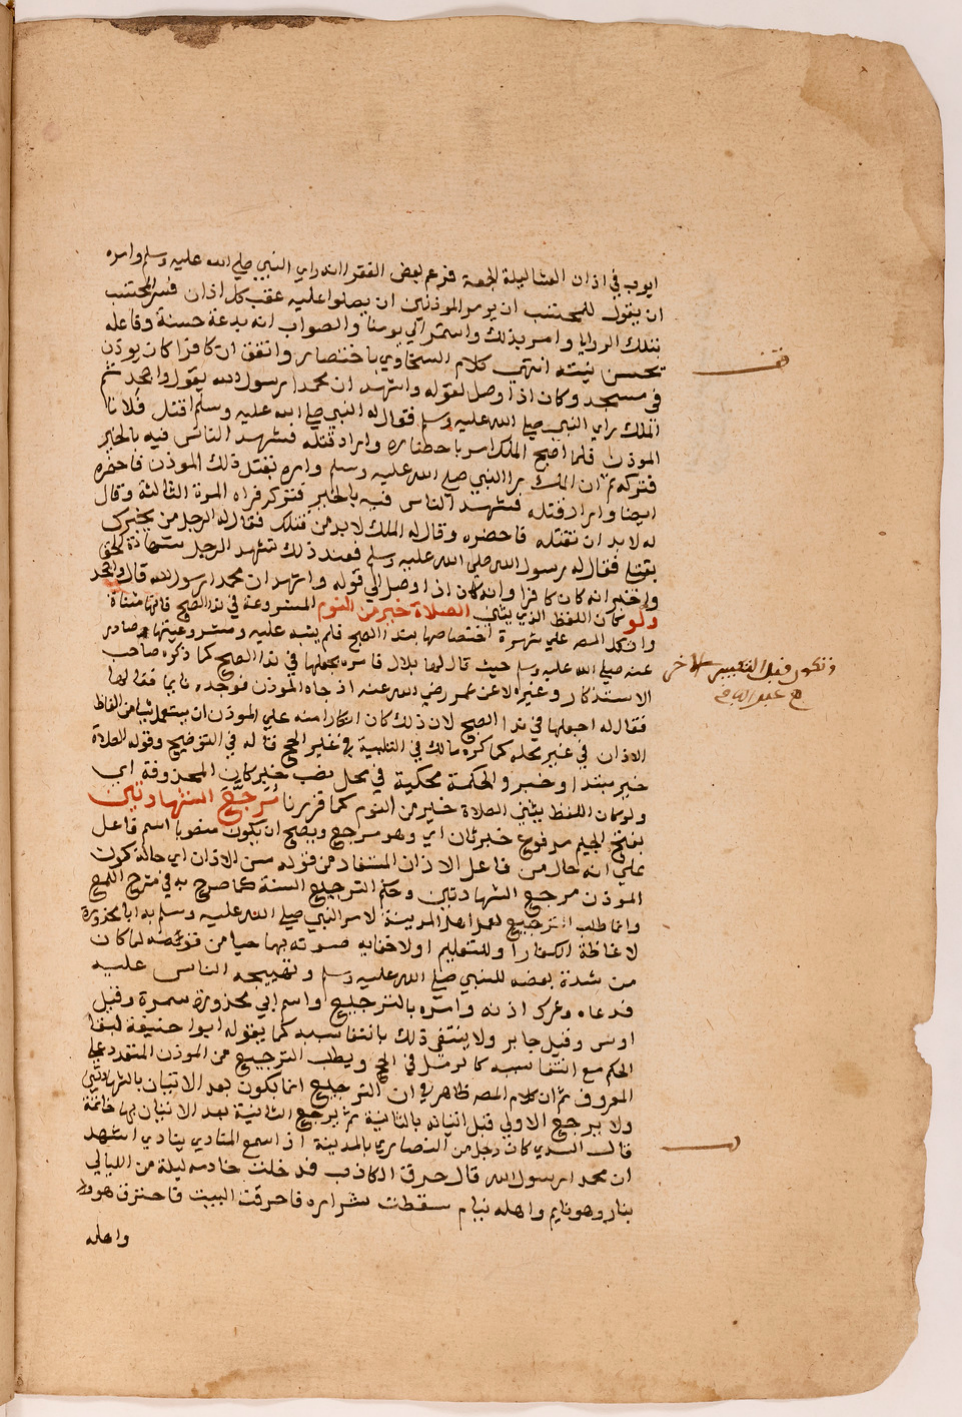 ايوب في اذان العشا ليلة الجمعة فزعم بعض الفقرا انه راي النبي صلي الله عليه وسلم وامره
ان يقول للمحتسب ان يرمر الموذنين ان يصلوا عليه عقب كل اذان فسر المحتسب
بتلك الرويا وامر بذلك واستمر الي يومنا والصواب انه بدعة حسنة وفاعله
بحسن نيته انتهي كلام السخاوي باختصار واتفق ان كافرا كان يوذن
في مسجد وكان اذا وصل لقوله واشهد ان محمدا رسول الله يقول وا ثم
الملك براي النبي صلي الله عليه وسلم فقال له النبي صلي الله عليه وسلم اقتل فلانا
الموذن فلما اصبح الملك امر باحضاره واراد قتله فشهد الناس فيه بالخير
فتركه ثم ان الملك را النبي صلي الله عليه وسلم وامره بقتل ذلك الموذن فاحضره
ايضا واراد قتله فشهد الناس فيه بالخير فتركه فراه المرة الثالثة وقال
له لا بد ان تقتله فاحضره وقال له الملك لا بد من قتلك فقال له الرجل من يخبرك
بقتلي فقال له رسول الله صلي الله عليه وسلم فعند ذلك تشهد الرجل شهادة الحق
واخبر انه كان كافرا وانه كان اذا وصل الي قوله واشهد ان محمدا رسول الله قال
ولو كان اللفظ الذي يثني الصلاة خير من النوم المشروعة في ندا الصبح فانها مثناة
واتكل المص علي شهرة اختصاصها بندا الصبح فلم ينبه عليه ومشروعيتها صادر
عنه صلي الله عليه وسلم حيث قال لها بلال فامره بجعلها في ندا الصبح كما ذكره صاحب
الاستذكار وغيره لا عن عمر رضي الله عنه اذ جاه الموذن فوجده نايما فقالها
فقال له اجعلها في ندا الصبح لان ذلك كان انكارا منه علي الموذن ان يستعمل شيا من الفاظ
الاذان في غير محله كما كره مالك في التلبية في غير الحج قاله في التوضيح وقوله الصلاة
خير مبتدا وخبر والحكمة محكية في محل نصب خبر كان المحذوفة اي
ولو كان اللفظ يثني الصلاة خير من النوم كما قررنا مرجع الشهادتين
بفتح الجيم مرفوع خبر ثان اي وهو مرجع ويصح ان يكون منصوبا اسم فاعل
علي انه حال من فاعل الاذان المستفاد من قوله سن الاذان اي حالة كون
الموذن مرجع الشهادتين وحكم الترجيع السنة كما صرح به في شرح اللمع
وانما طلب الترجيع لعمل اهل المدينة لامر النبي صلي الله عليه وسلم به ابا محذورة
لاغاظة الكفار او للتعليم او لاخفايه صوته بها حيا من قومه لما كان
من شدة بغضه للنبي صلي الله عليه وسلم وتهييجه الناس عليه
فدعاه وعرك اذنه وامره بالترجيع واسم ابي محذورة سمرة وقيل
اوس وقيل جابر ولا ينتفي ذلك بانتفا سببه كما يقوله ابو حنيفة لبقا
الحكم مع انتفا سببه كالرمل في الحج ويطلب الترجيع من الموذن المتعدد علي
المعروف ثم ان كلام المص ظاهر في ان الترجيع انما يكون بعد الاتيان بالشهادتين
ولا يرجع الاولي قبل اتيانه بالثانية ثم يرجع الثانية بعد الاتيان بها خاتمة
قال السدي كان رجل من النصاري بالمدينة اذا سمع المنادي ينادي اشهد
ان محمدا رسول الله قال حرق الكاذب فدخلت خادمه ليلة من الليالي
بنار وهو نايم واهله نيام سقطت شراره فاحرقت البيت فاحترق هو
واهله
قف
وتكون قبل التكبير الاخر
عبد الباقي